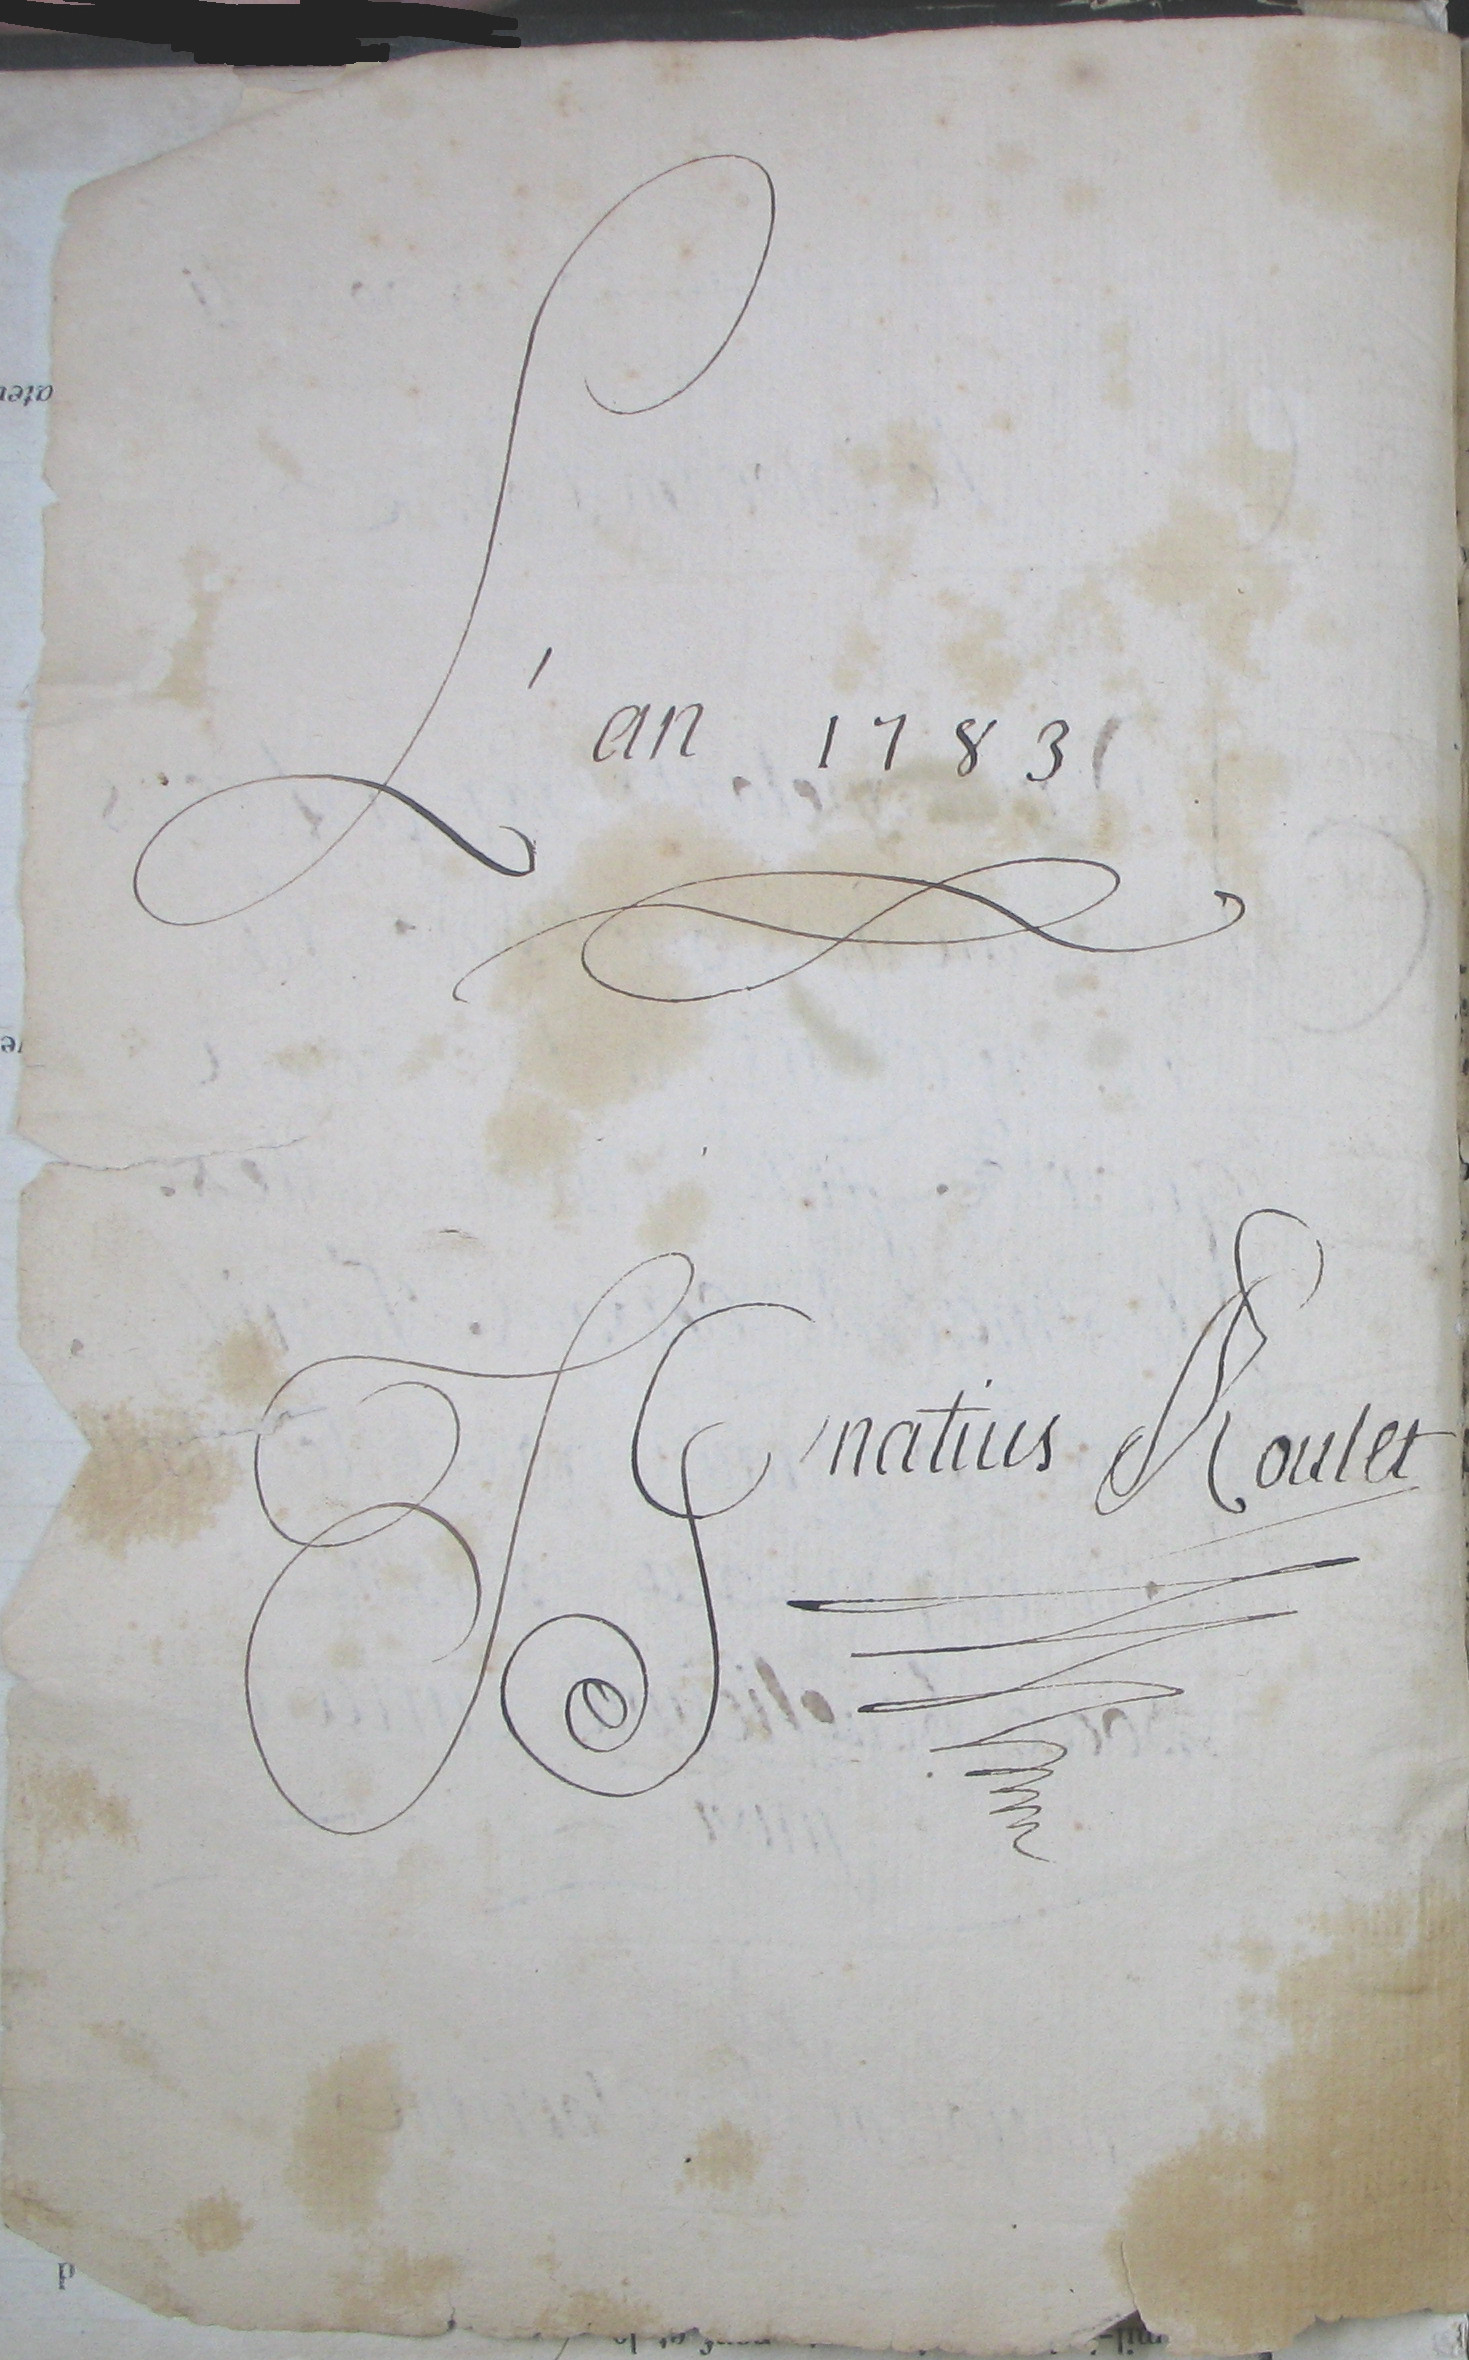 L'an 1783
IGnatius Roulet